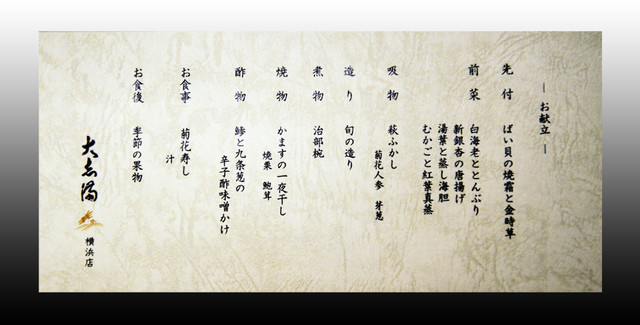 ― お献立 ―
先付 ばい貝の焼霜と金時草
前菜 白海老ととんぶり
新銀杏の唐揚げ
湯葉と蒸し海胆
むかごと紅葉真蒸
吸物 萩ふかし
菊花人参 芽葱
造り 旬の造り
煮物 治部椀
焼物 かますの一夜干し
焼栗 鮑茸
酢物 鯵と九条葱の
辛子酢味噌かけ
お食事 菊花寿し
汁
お食後 季節の果物
大志満
横浜店